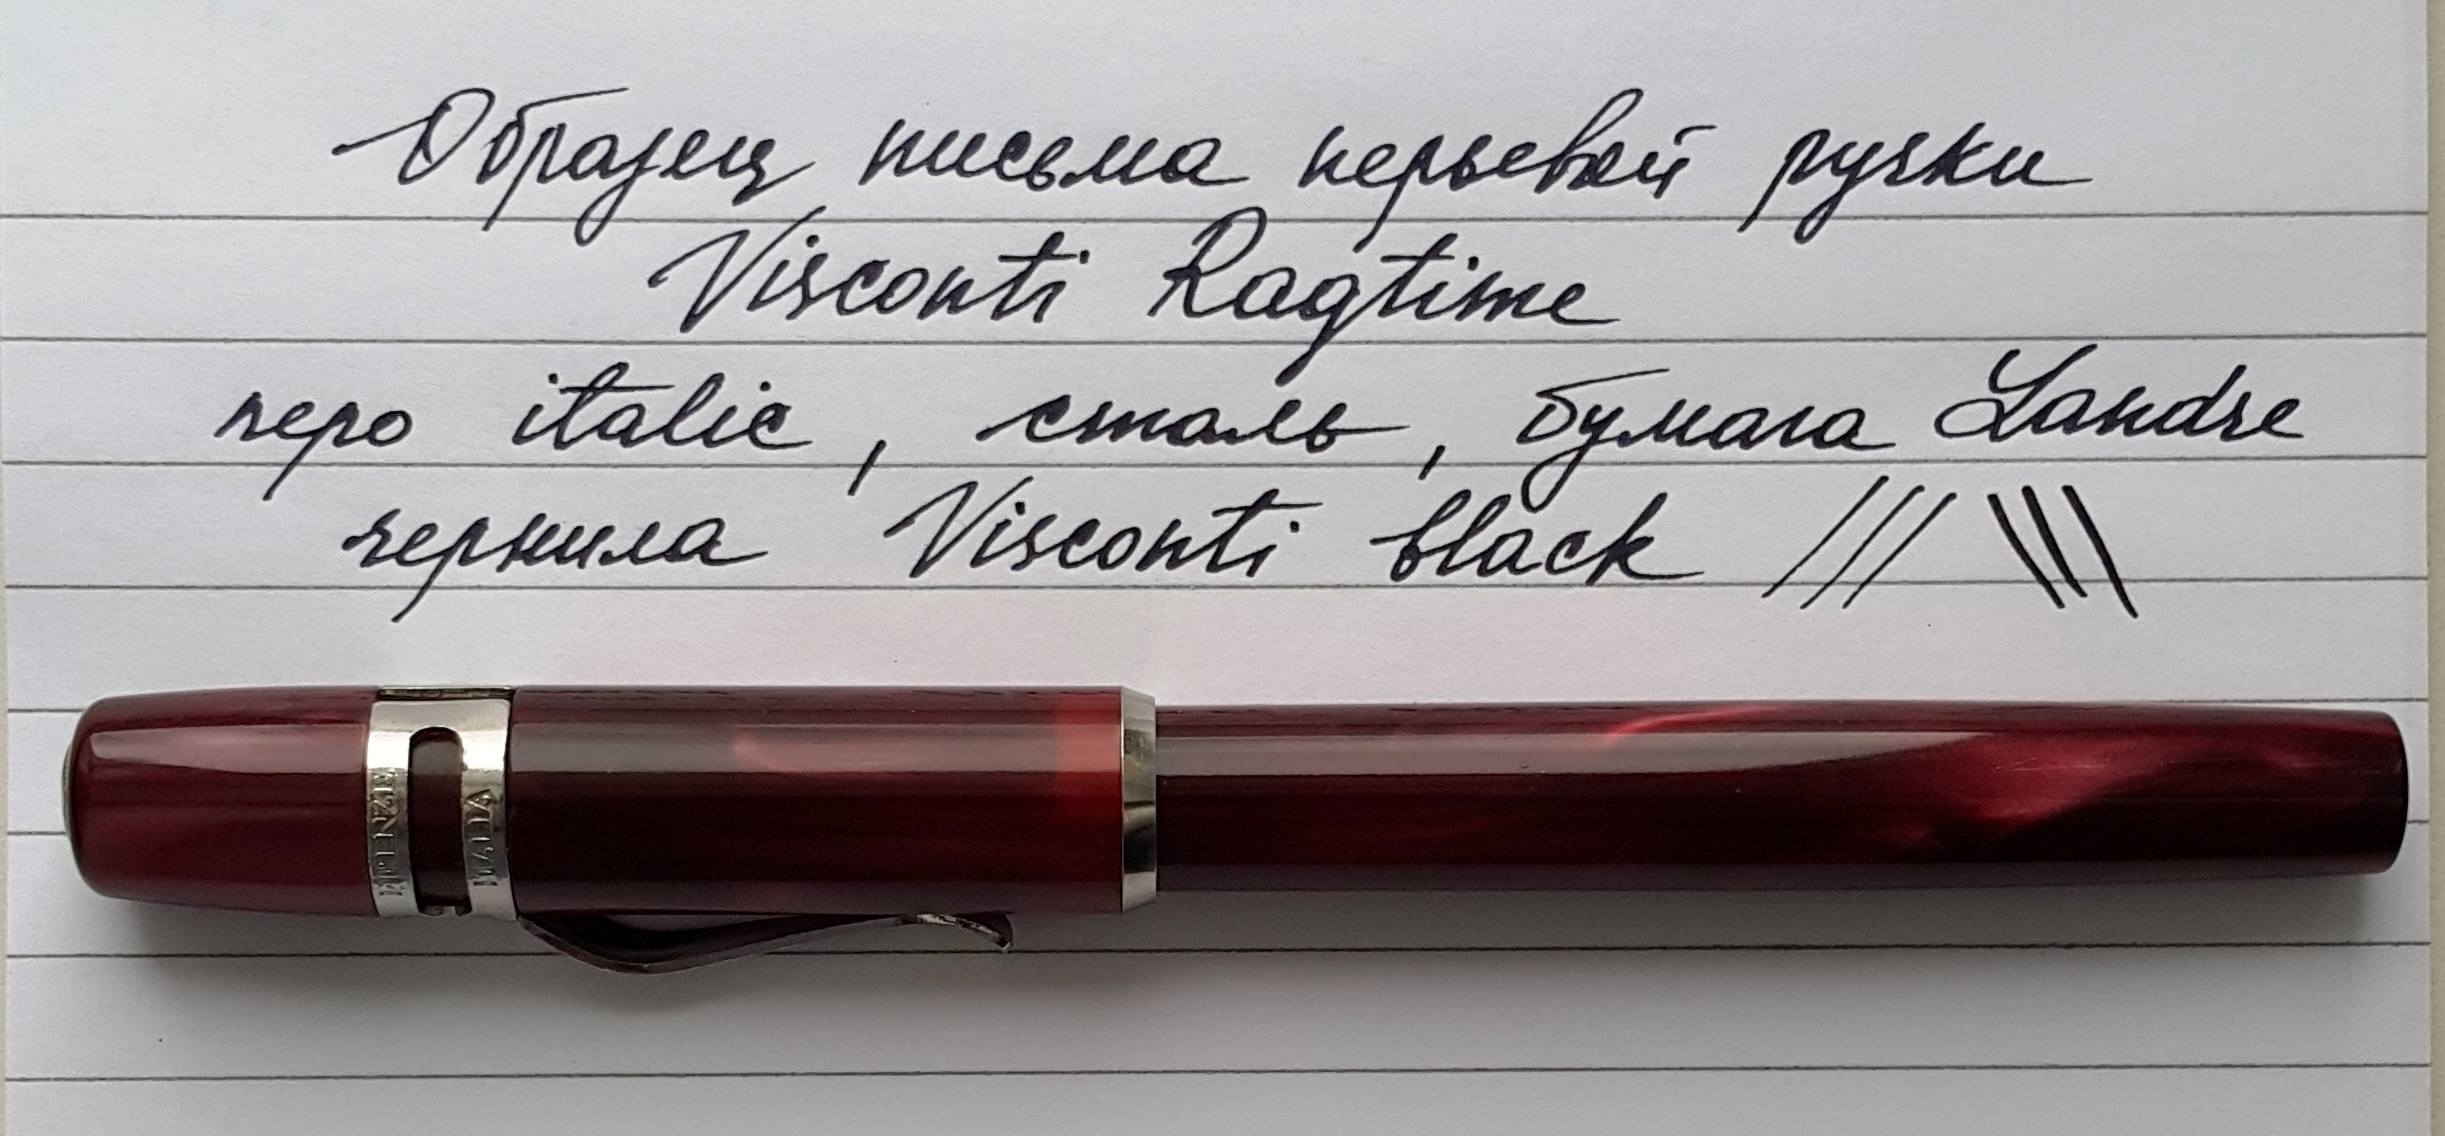 Образец письма перьевой ручки
Visconti Ragtime
перо italic, сталь, бумага Landre
чернила Visconti black
FIRENZE
ITALIA